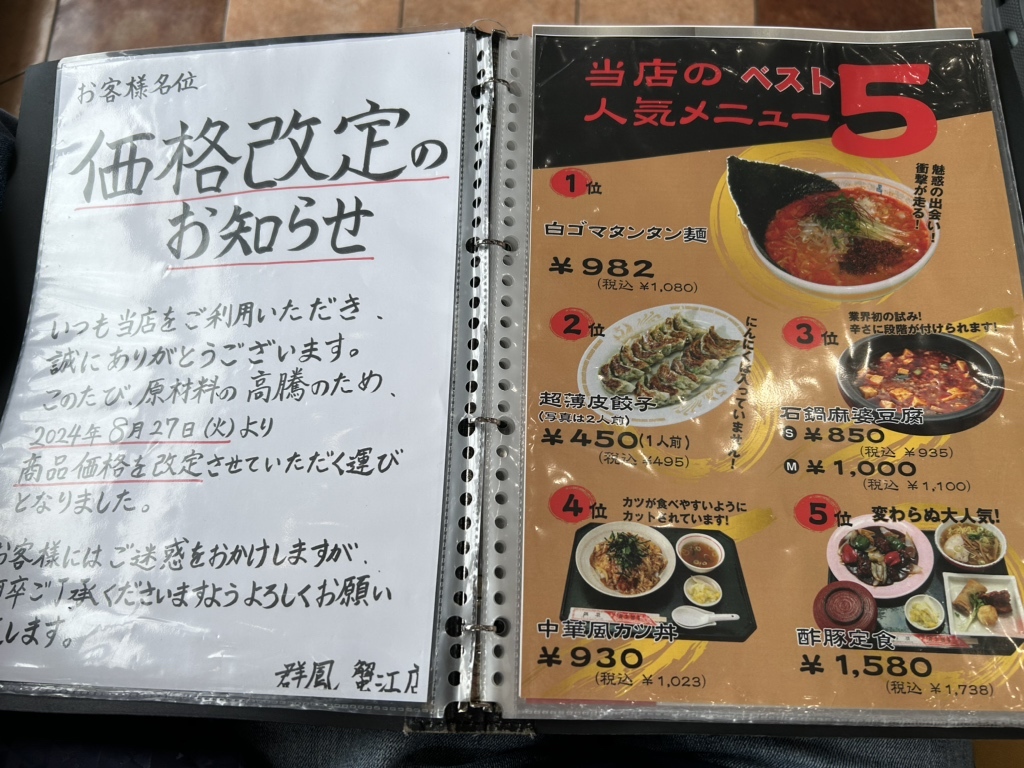 お客様名位
価格改定の
お知らせ
いつも当店をご利用いただき、
誠にありがとうございます。
このたび、原材料の高騰のため、
2024年8月27日(火)より
商品価格を改定させていただく運び
となりました。
お客様にはご迷惑をおかけしますが、
何卒ご了承くださいますようよろしくお願い
します。
群鳳 蟹江店
当店の ベスト5
人気メニュー
1位
魅惑の出会い!
衝撃が走る!
白ゴマタンタン麺
¥982
(税込 ¥1,080)
2位
にんにくは入っていません!
超薄皮餃子
(写真は2人前)
¥450(1人前)
(税込 ¥495)
3位
業界初の試み!
辛さに段階が付けられます!
石鍋麻婆豆腐
S ¥850
(税込 ¥935)
M ¥1,000
(税込 ¥1,100)
4位
カツが食べやすいように
カットされています!
中華風カツ丼
¥930
(税込 ¥1,023)
5位
変わらぬ大人気!
酢豚定食
¥1,580
(税込 ¥1,738)